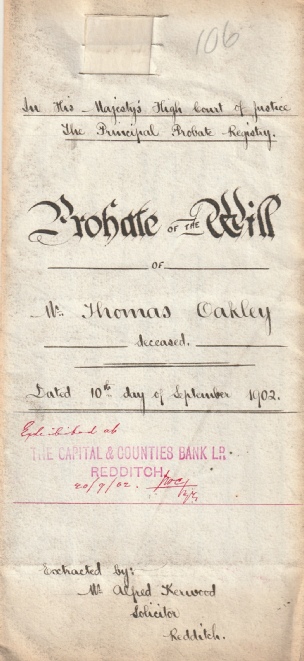 106
In His Majesty's High Court of Justice
The Principal Probate Registry.
Probate OF THE Will
OF
Mr. Thomas Oakley
deceased.
Dated 10th day of September 1902.
Exhibited at
THE CAPITAL & COUNTIES BANK LD
REDDITCH.
20/9/02.
Extracted by:-
Mr Alfred Kerwood
Solicitor
Redditch.